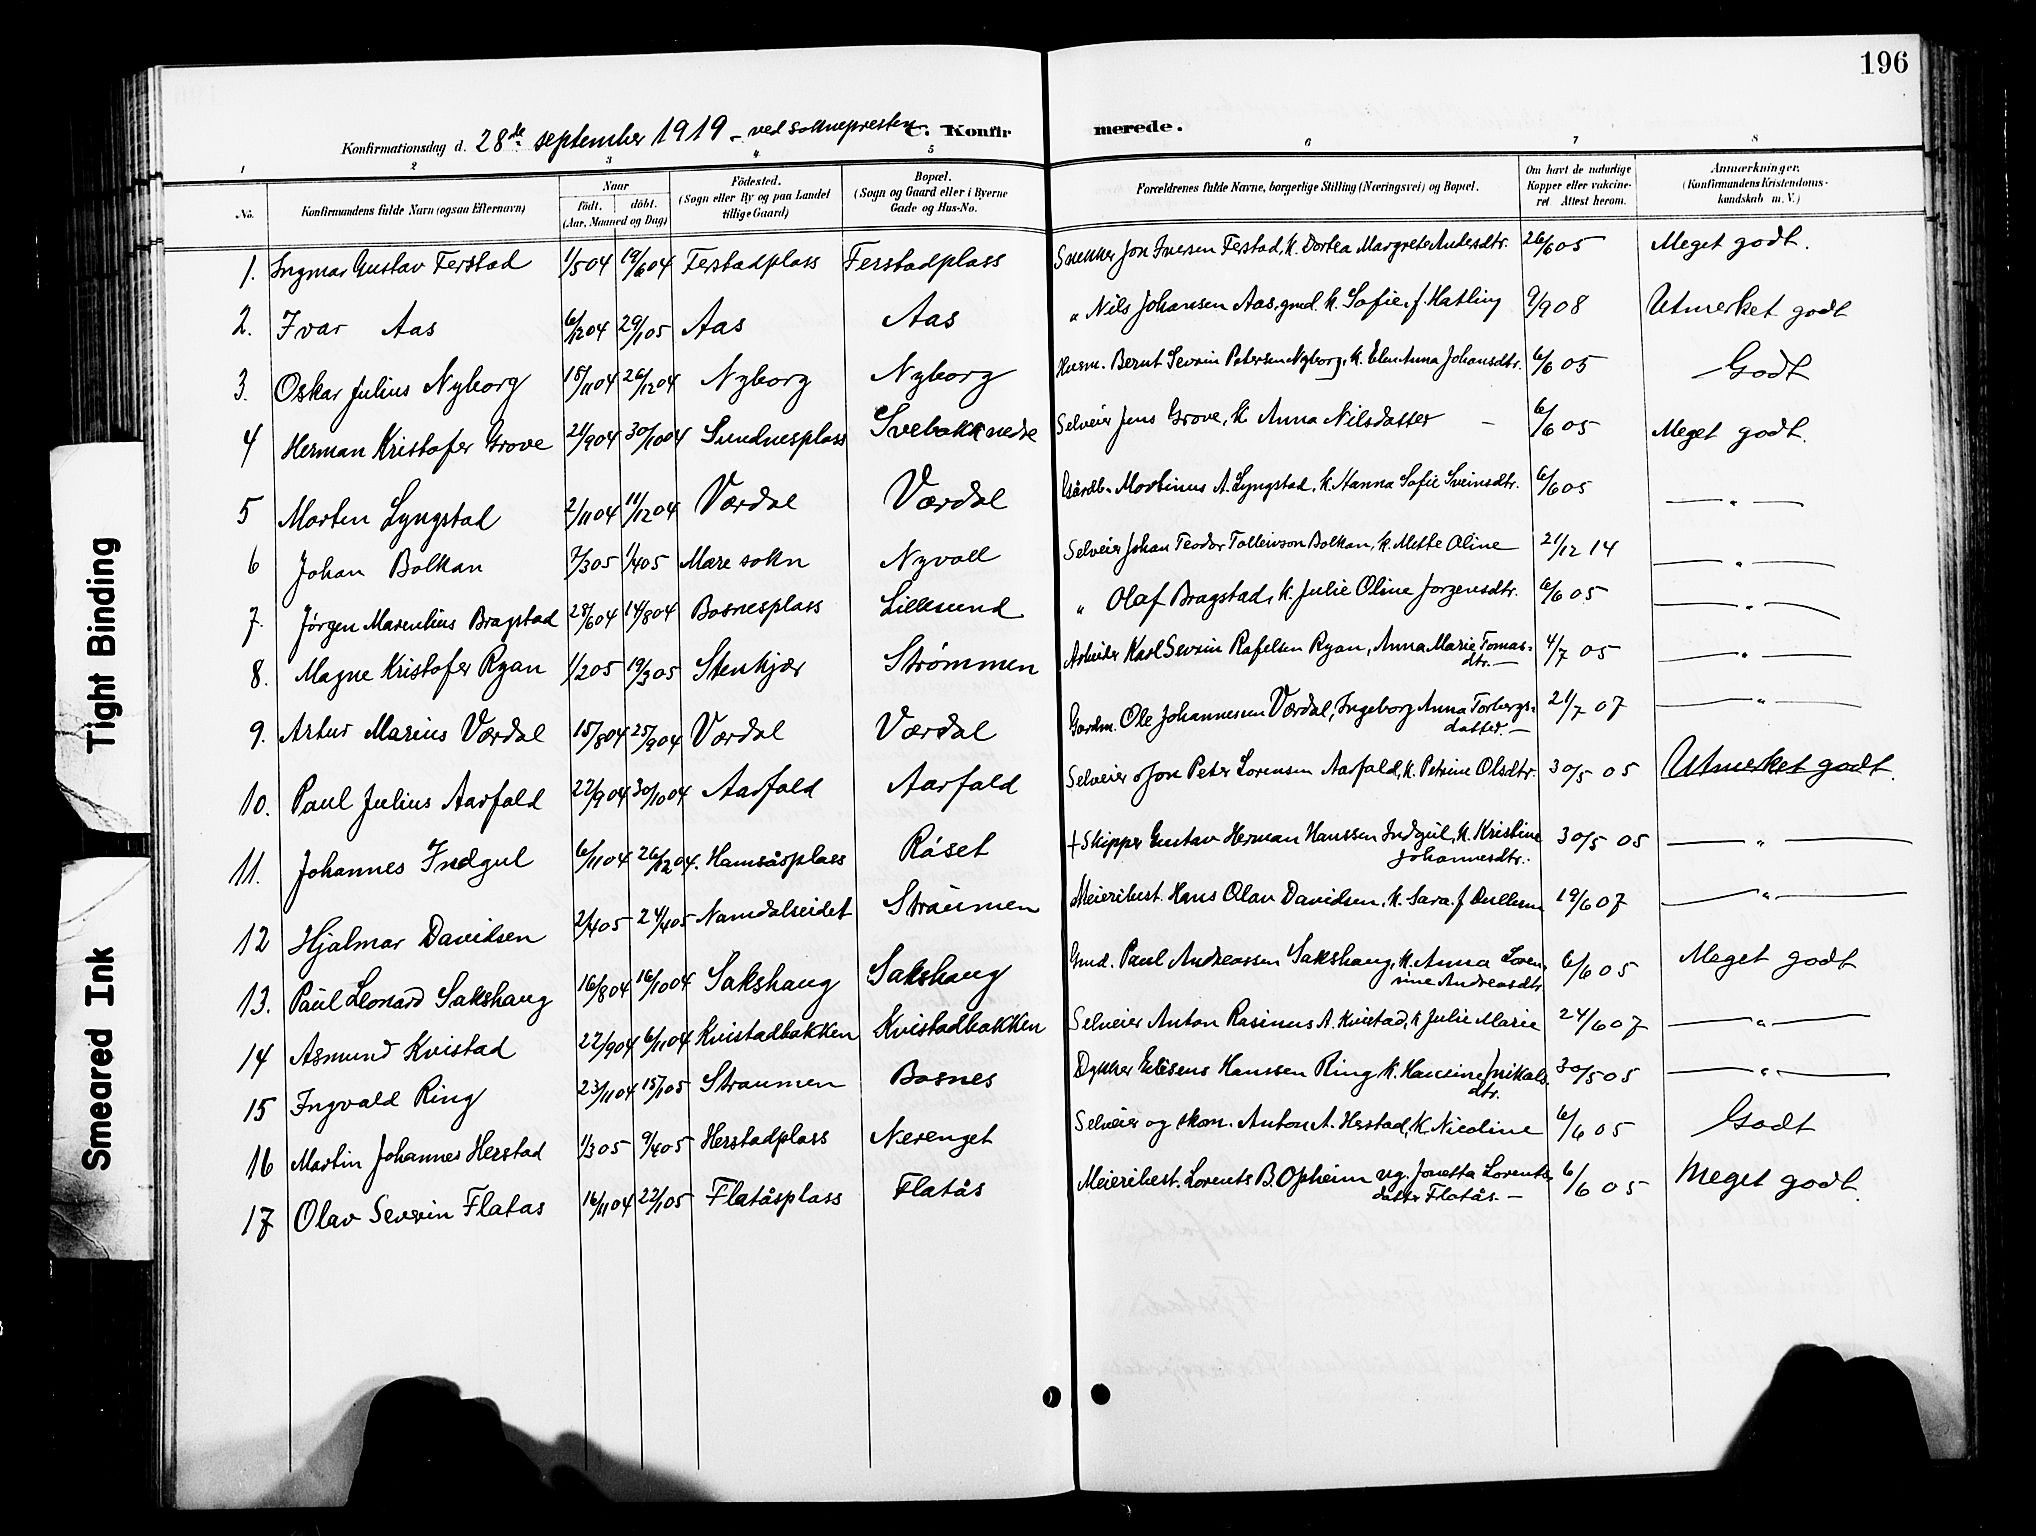 196
Konfirmationsdag d. 28de september 1919 - ved soknepresten C. Konfirmerede.
1 2 3 4 5 6 7 8
No. Konfirmandens fulde Navn (ogsaa Efternavn) Naar født. døbt. (Aar, Maaned og Dag) Fødested. (Sogn eller By og paa Landet tillige Gaard) Bopæl. (Sogn og Gaard eller i Byerne Gade og Hus-No. Forældrenes fulde Navne, borgerlige Stilling (Næringsvei) og Bopæl. Om havt de naturlige Kopper eller vakcineret. Attest herom. Anmærkninger. (Konfirmandens Kristendomskundskab m. V.)
1. Ingmar Gustav Ferstad 1/5 04 19/6 04 Ferstadplass Ferstadplass Snekker Jon Iversen Ferstad, k. Dortea Margrete Andersdtr. 26/6 05 Meget godt.
2. Ivar Aas 6/12 04 29/1 05 Aas Aas " Nils Johansen Aas, gmd. k. Sofie, f. Hatling 9/9 08 Utmerket godt
3. Oskar Julius Nyborg 18/11 04 26/12 04 Nyborg Nyborg Husm. Bernt Sevrin Petersen Nyborg, k. Elen Anna Johansdtr. 6/6 05 Godt
4 Herman Kristofer Grove 21/9 04 30/10 04 Sundnesplass Svebakk nedre Selveier Jens Grove, k. Anna Nilsdatter - 6/6 05 Meget godt.
5 Morten Lyngstad 2/11 04 11/12 04 Værdal Værdal Gårdb. Mortinus A. Lyngstad, k. Hanna Sofie Sveinsdtr. 6/6 05 — " —
6 Johan Bolkan 7/3 05 1/4 05 Mære sokn Nyvoll Selveier Johan Teodor Tollevson Bolkan, k. Mette Oline 21/12 14 — " —
7. Jørgen Marenlius Bragstad 28/6 04 14/8 04 Bosnesplass Lillesund " Olaf Bragstad, k. Julie Oline Jørgensdtr. 6/6 05 — " —
8. Magne Kristofer Ryan 1/2 05 19/3 05 Stenkjær Strømmen Arbeider Karl Severin Rafelsen Ryan, Anna Marie Tomas-
dtr. — 4/7 05 — " —
9. Artur Marius Værdal 15/8 04 25/9 04 Værdal Værdal Gardm. Ole Johannesen Værdal, Ingeborg Anna Torbergs-
datter. — 21/7 07 — " —
10. Paul Julius Aarfald 22/9 04 30/10 04 Aarfald Aarfald Selveier Jon Peter Lorensen Aarfald, k. Petrine Olsdtr. 30/5 05 Utmerket godt.
11. Johannes Indgul 6/11 04 26/12 04. Hamsåsplass Røset + Skipper Gustav Herman Hanssen Indgul, k. Kristine
Johannesdtr. 30/5 05 — " —
12 Hjalmar Davidsen 2/4 05 24/4 05 Namdalseidet Straumen Meieribest. Hans Olav Davidsen, k. Sara. f 19/6 07 — " —
13. Paul Leonard Sakshaug 16/8 04 16/10 04 Sakshaug Sakshaug Gmd. Paul Andreassen Sakshaug, k. Anna Loren-
sine Andreasdtr. 6/6 05 Meget godt
14 Asmund Kvistad 22/9 04 6/11 04 Kvistadbakken Kvistadbakken Selveier Anton Rasinus A. Kvistad, k. Julie Marie 24/6 07 — " —
15 Ingvald Ring 23/11 04 15/1 05 Straumen Bosnes Dykker Elisens Hanssen Ring k. Hansine
dtr. 30/5 05 — " —
16 Martin Johannes Herstad 1/3 05 9/4 05 Herstadplass Nerenget Selveier og skom. Anton A. Herstad, k. Nicoline 6/6 05 Godt
17 Olav Severin Flatas 16/11 04 22/1 05 Flatåsplass Flatås Meieribest. Lorents B. Opheim ug. Jonetta Lorents-
datter Flatås. — 6/6 05 Meget godt.
Tight Binding
Smeared Ink